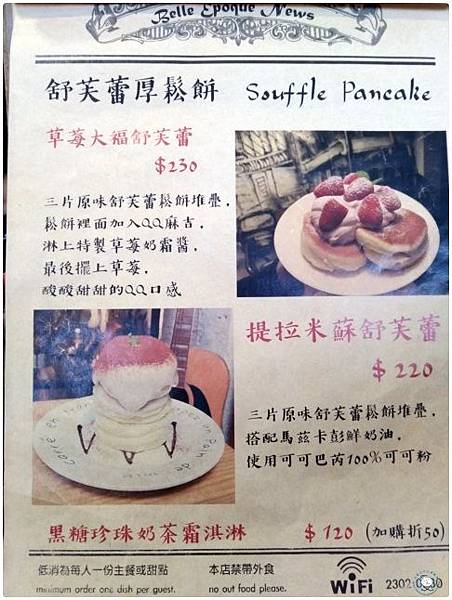 Belle Epoque News
舒芙蕾厚鬆餅 Souffle Pancake
草莓大福舒芙蕾
$230
三片原味舒芙蕾鬆餅堆疊,
鬆餅裡面加入QQ麻吉,
淋上特製草莓奶霜醬,
最後擺上草莓,
酸酸甜甜的QQ口感
提拉米蘇舒芙蕾
$220
三片原味舒芙蕾鬆餅堆疊,
搭配馬茲卡彭鮮奶油,
使用可可巴芮100%可可粉
黑糖珍珠奶茶霜淇淋 $120 (加購折50)
低消為每人一份主餐或甜點 本店禁帶外食
minimum order one dish per guest. no out food please.
WiFi